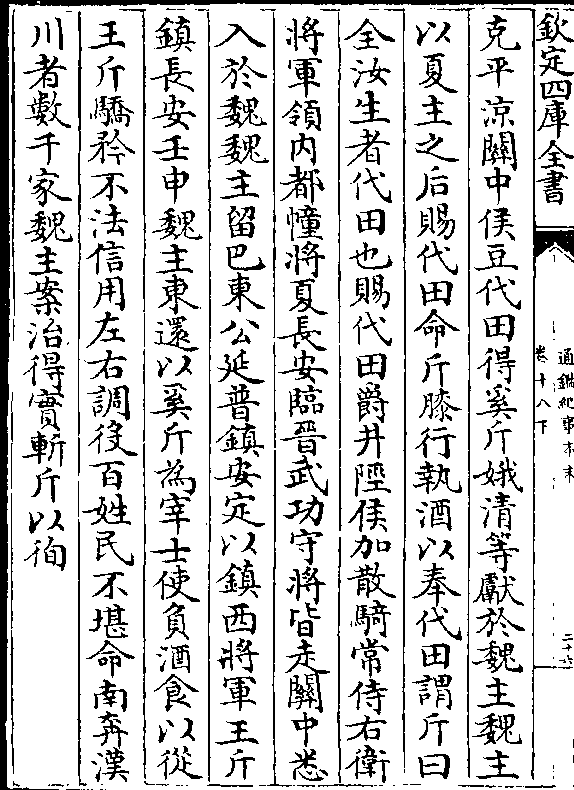 欽定四庫全書
通鑑紀事本末
卷十八下
二十六
克平涼關中侯豆代田得奚斤娥清等獻於魏主魏主
以夏主之后賜代田命斤膝行執酒以奉代田謂斤曰
全汝生者代田也賜代田爵井陘侯加散騎常侍右衛
將軍領内都幢將夏長安臨晉武功守將皆走關中悉
入於魏魏主留巴東公延普鎮安定以鎮西將軍王斤
鎮長安壬申魏主東還以奚斤為宰士使負酒食以從
王斤驕矜不法信用左右調役百姓民不堪命南奔漢
川者數千家魏主案治得實斬斤以徇